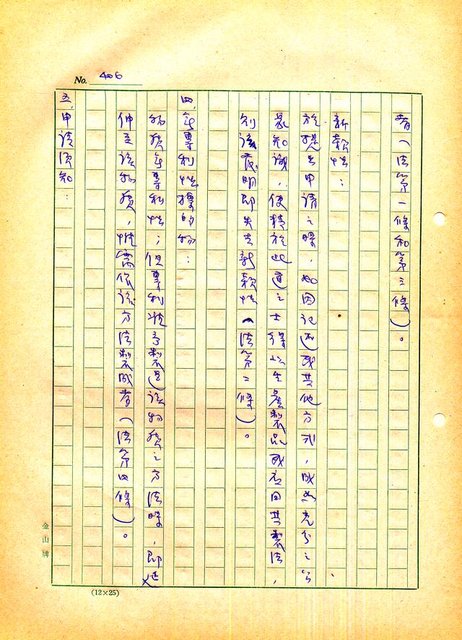 No. 406
者（法第一條和第三條）。
新穎性：
於提出申請之時，如因記述或其他方式，或因充分之公
眾知識，使精於此道之士得以生產製品或應用其製法，
則該發明即失去新穎性（法第二條）。
四、專利性標的物：
物質專利性；但專利特予製造該物質之方法時，即延
伸至該物質，惟需依該方法製成者（法第四條）。
五、申請須知：
金山牌
(12×25)